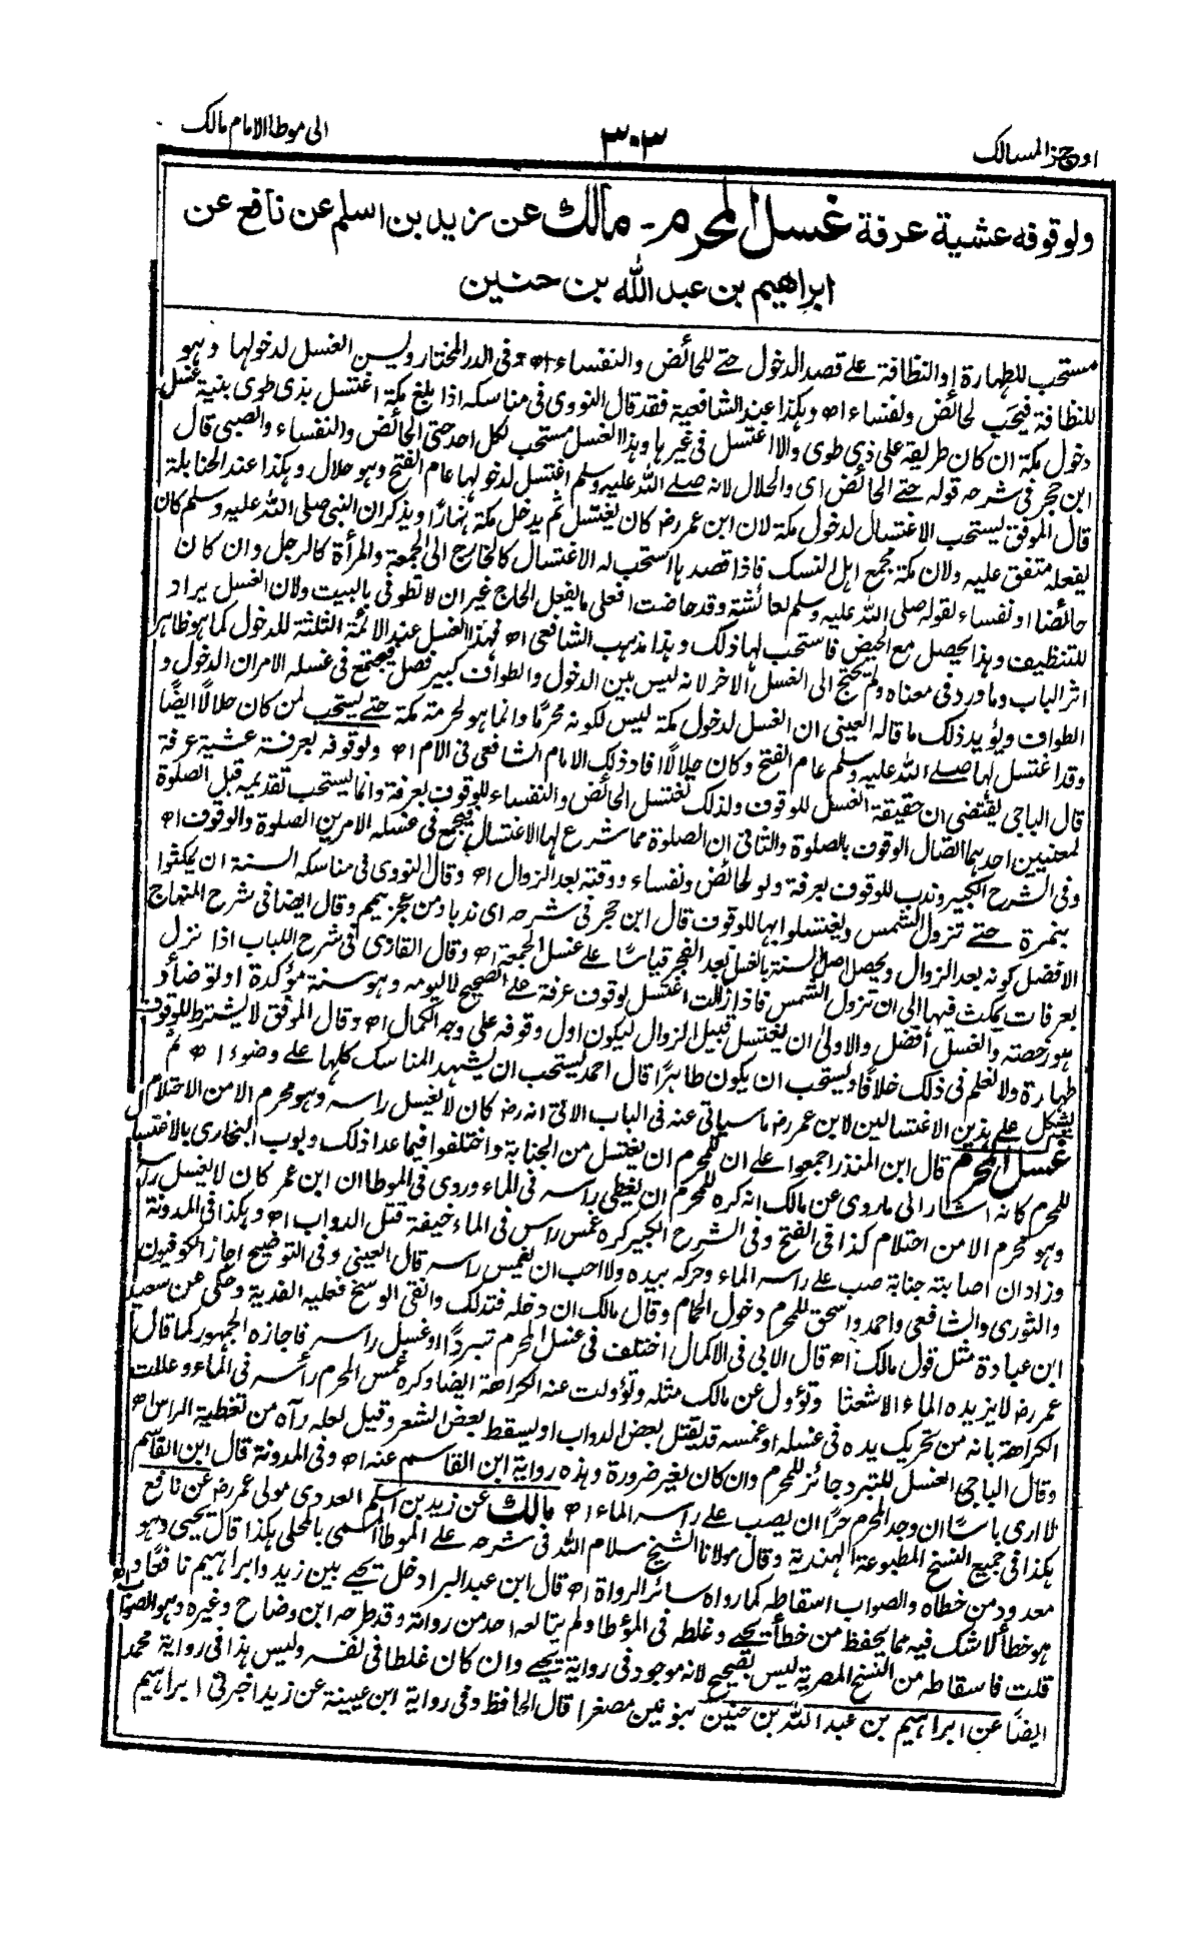 اوجز المسالك
٣٠٣
الى موطا الامام مالك
ولوقوفه عشية عرفة غسل المحرم - مالك عن زيد بن اسلم عن نافع عن
ابراهيم بن عبد الله بن حنين
مستحب للطهارة او النظافة على قصد الدخول حتى للحائض والنفساء اه وفى الدر المختار وليس الغسل لدخولها وهو
للنظافة فيحب لحائض ونفساء اه وهكذا عند الشافعية فقد قال النووى فى مناسكه اذا بلغ مكة اغتسل بذى طوى بنية غسل
دخول مكة ان كان طريقه على ذي طوى والا اغتسل فى غيرها وهذا الغسل مستحب لكل احد حتى الحائض والنفساء والصبى قال
ابن حجر فى شرحه قوله حتى الحائض اى والحلال لانه صلى الله عليه وسلم اغتسل لدخولها عام الفتح وهو حلال وهكذا عند الحنابلة
قال الموفق يستحب الاغتسال لدخول مكة لان ابن عمر رض كان يغتسل ثم يدخل مكة نهارًا ويذكر ان النبى صلى الله عليه وسلم كان
يفعله متفق عليه ولان مكة مجمع اهل النسك فاذا قصدها استحب له الاغتسال كالخارج الى الجمعة والمرأة كالرجل وان كان
حائضا او نفساء لقوله صلى الله عليه وسلم لعائشة وقد حاضت افعلى ما يفعل الحاج غير ان لا تطوفى بالبيت ولان الغسل يراد
للتنظيف وهذا يحصل مع الحيض فاستحب لها ذلك وهذا مذهب الشافعى اه فهذا الغسل عند الائمة الثلثة للدخول كما هو ظاهر
اثر الباب وما ورد فى معناه ولم يحتج الى الغسل الاخر لانه ليس بين الدخول والطواف كبير فصل فيجتمع فى غسله الامران الدخول و
الطواف ويؤيد ذلك ما قاله العينى ان الغسل لدخول مكة ليس لكونه محرمًا وانما هو لحرمة مكة حتى يستحب لمن كان حلالًا ايضًا
وقد اغتسل لها صلى الله عليه وسلم عام الفتح وكان حلالًا افاد ذلك الامام الشافعى فى الام اه ولوقوفه بعرفة عشية عرفة
قال الباجى يقتضى ان حقيقة الغسل للوقوف ولذلك تغتسل الحائض والنفساء للوقوف بعرفة وانما يستحب تقديمه قبل الصلوة
لمعنيين احدهما اتصال الوقوف بالصلوة والثانى ان الصلوة مما شرع لها الاغتسال فيجمع فى غسله الامرين الصلوة والوقوف اه
وفى الشرح الكبير وندب للوقوف بعرفة ولو لحائض ونفساء ووقته بعد الزوال اه وقال النووى فى مناسكه السنة ان يمكثوا
بنمرة حتى تزول الشمس ويغتسلوا بها للوقوف قال ابن حجر فى شرحه اى ندبا ومن عجز يتيمم وقال ايضا فى شرح المنهاج
الافضل كونه بعد الزوال ويحصل اصل السنة بالغسل بعد الفجر قياسًا على غسل الجمعة اه وقال القارى فى شرح اللباب اذا نزل
بعرفات يمكث فيها الى ان تزول الشمس فاذا زالت اغتسل لوقوف عرفة على الصحيح لا ليومه وهو سنة مؤكدة او توضأ و
هو رخصة والغسل افضل والاولىٰ ان يغتسل قبيل الزوال ليكون اول وقوفه على وجه الكمال اه وقال الموفق لا يشترط للوقوف
طهارة ولا نعلم فى ذلك خلافًا ويستحب ان يكون طاهرًا قال احمد يستحب ان يشهد المناسك كلها على وضوء اه ثم
يشكل على هذين الاغتسالين لابن عمر رض ما سياتى عنه فى الباب الاتى انه رض كان لا يغسل راسه وهو محرم الا من الاحتلام
غسل المحرم قال ابن المنذر اجمعوا على ان للمحرم ان يغتسل من الجنابة واختلفوا فيما عدا ذلك وبوب البخارى بالاغتسال
للمحرم كانه اشار الى ما روى عن مالك انه كره للمحرم ان يغطى راسه فى الماء وروى فى الموطا ان ابن عمر كان لا يغسل راسه
وهو محرم الا من احتلام كذا فى الفتح وفى الشرح الكبير كره غمس راس فى الماء خيفة قتل الدواب اه وهكذا فى المدونة
وزاد ان اصابته جنابة صب على راسه الماء وحركه بيده ولا احب ان يغمس راسه قال العينى وفى التوضيح اجاز الكوفيون
والثورى والشافعى واحمد واسحق للمحرم دخول الحمام وقال مالك ان دخله فتدلك وانقى الوسخ فعليه الفدية وحكى عن سعيد
ابن عبادة مثل قول مالك اه قال الابى فى الاكمال اختلف فى غسل المحرم تبردًا او غسل راسه فاجازه الجمهور كما قال
عمر رض لا يزيده الماء الا شعثا وتؤول عن مالك مثله وتؤولت عنه الكراهة ايضا وكره غمس المحرم رأسه فى الماء وعللت
الكراهة بانه من تحريك يده فى غسله او غمسه قد يقتل بعض الدواب او يسقط بعض الشعر وقيل لعله رآه من تغطية الراس اه
وقال الباجى الغسل للتبرد جائز للمحرم وان كان لغير ضرورة وهذه رواية ابن القاسم عنه اه وفى المدونة قال ابن القاسم
لا ارى باسًا ان وجد المحرم حرًا ان يصب على راسه الماء اه مالك عن زيد بن اسلم العدوى مولى عمر رض عن نافع
هكذا فى جميع النسخ المطبوعة الهندية وقال مولانا الشيخ سلام الله فى شرحه على الموطأ المسمى بالمحلى هكذا قال يحيى وهو
معدود من خطاه والصواب اسقاطه كما رواه سائر الرواة اه قال ابن عبد البر ادخل يحيى بين زيد وابراهيم نافعًا و
هو خطأ لا شك فيه مما يحفظ من خطأ يحيى وغلطه فى المؤطا ولم يتابعه احد من رواته وقد طرحه ابن وضاح وغيره وهو الصواب اه
قلت فاسقاطه من النسخ المصرية ليس بصحيح لانه موجود فى رواية يحيى وان كان غلطا فى نفسه وليس هذا فى رواية محمد
ايضًا عن ابراهيم بن عبد الله بن حنين بنونين مصغرا قال الحافظ وفى رواية ابن عيينة عن زيد اخبرنى ابراهيم